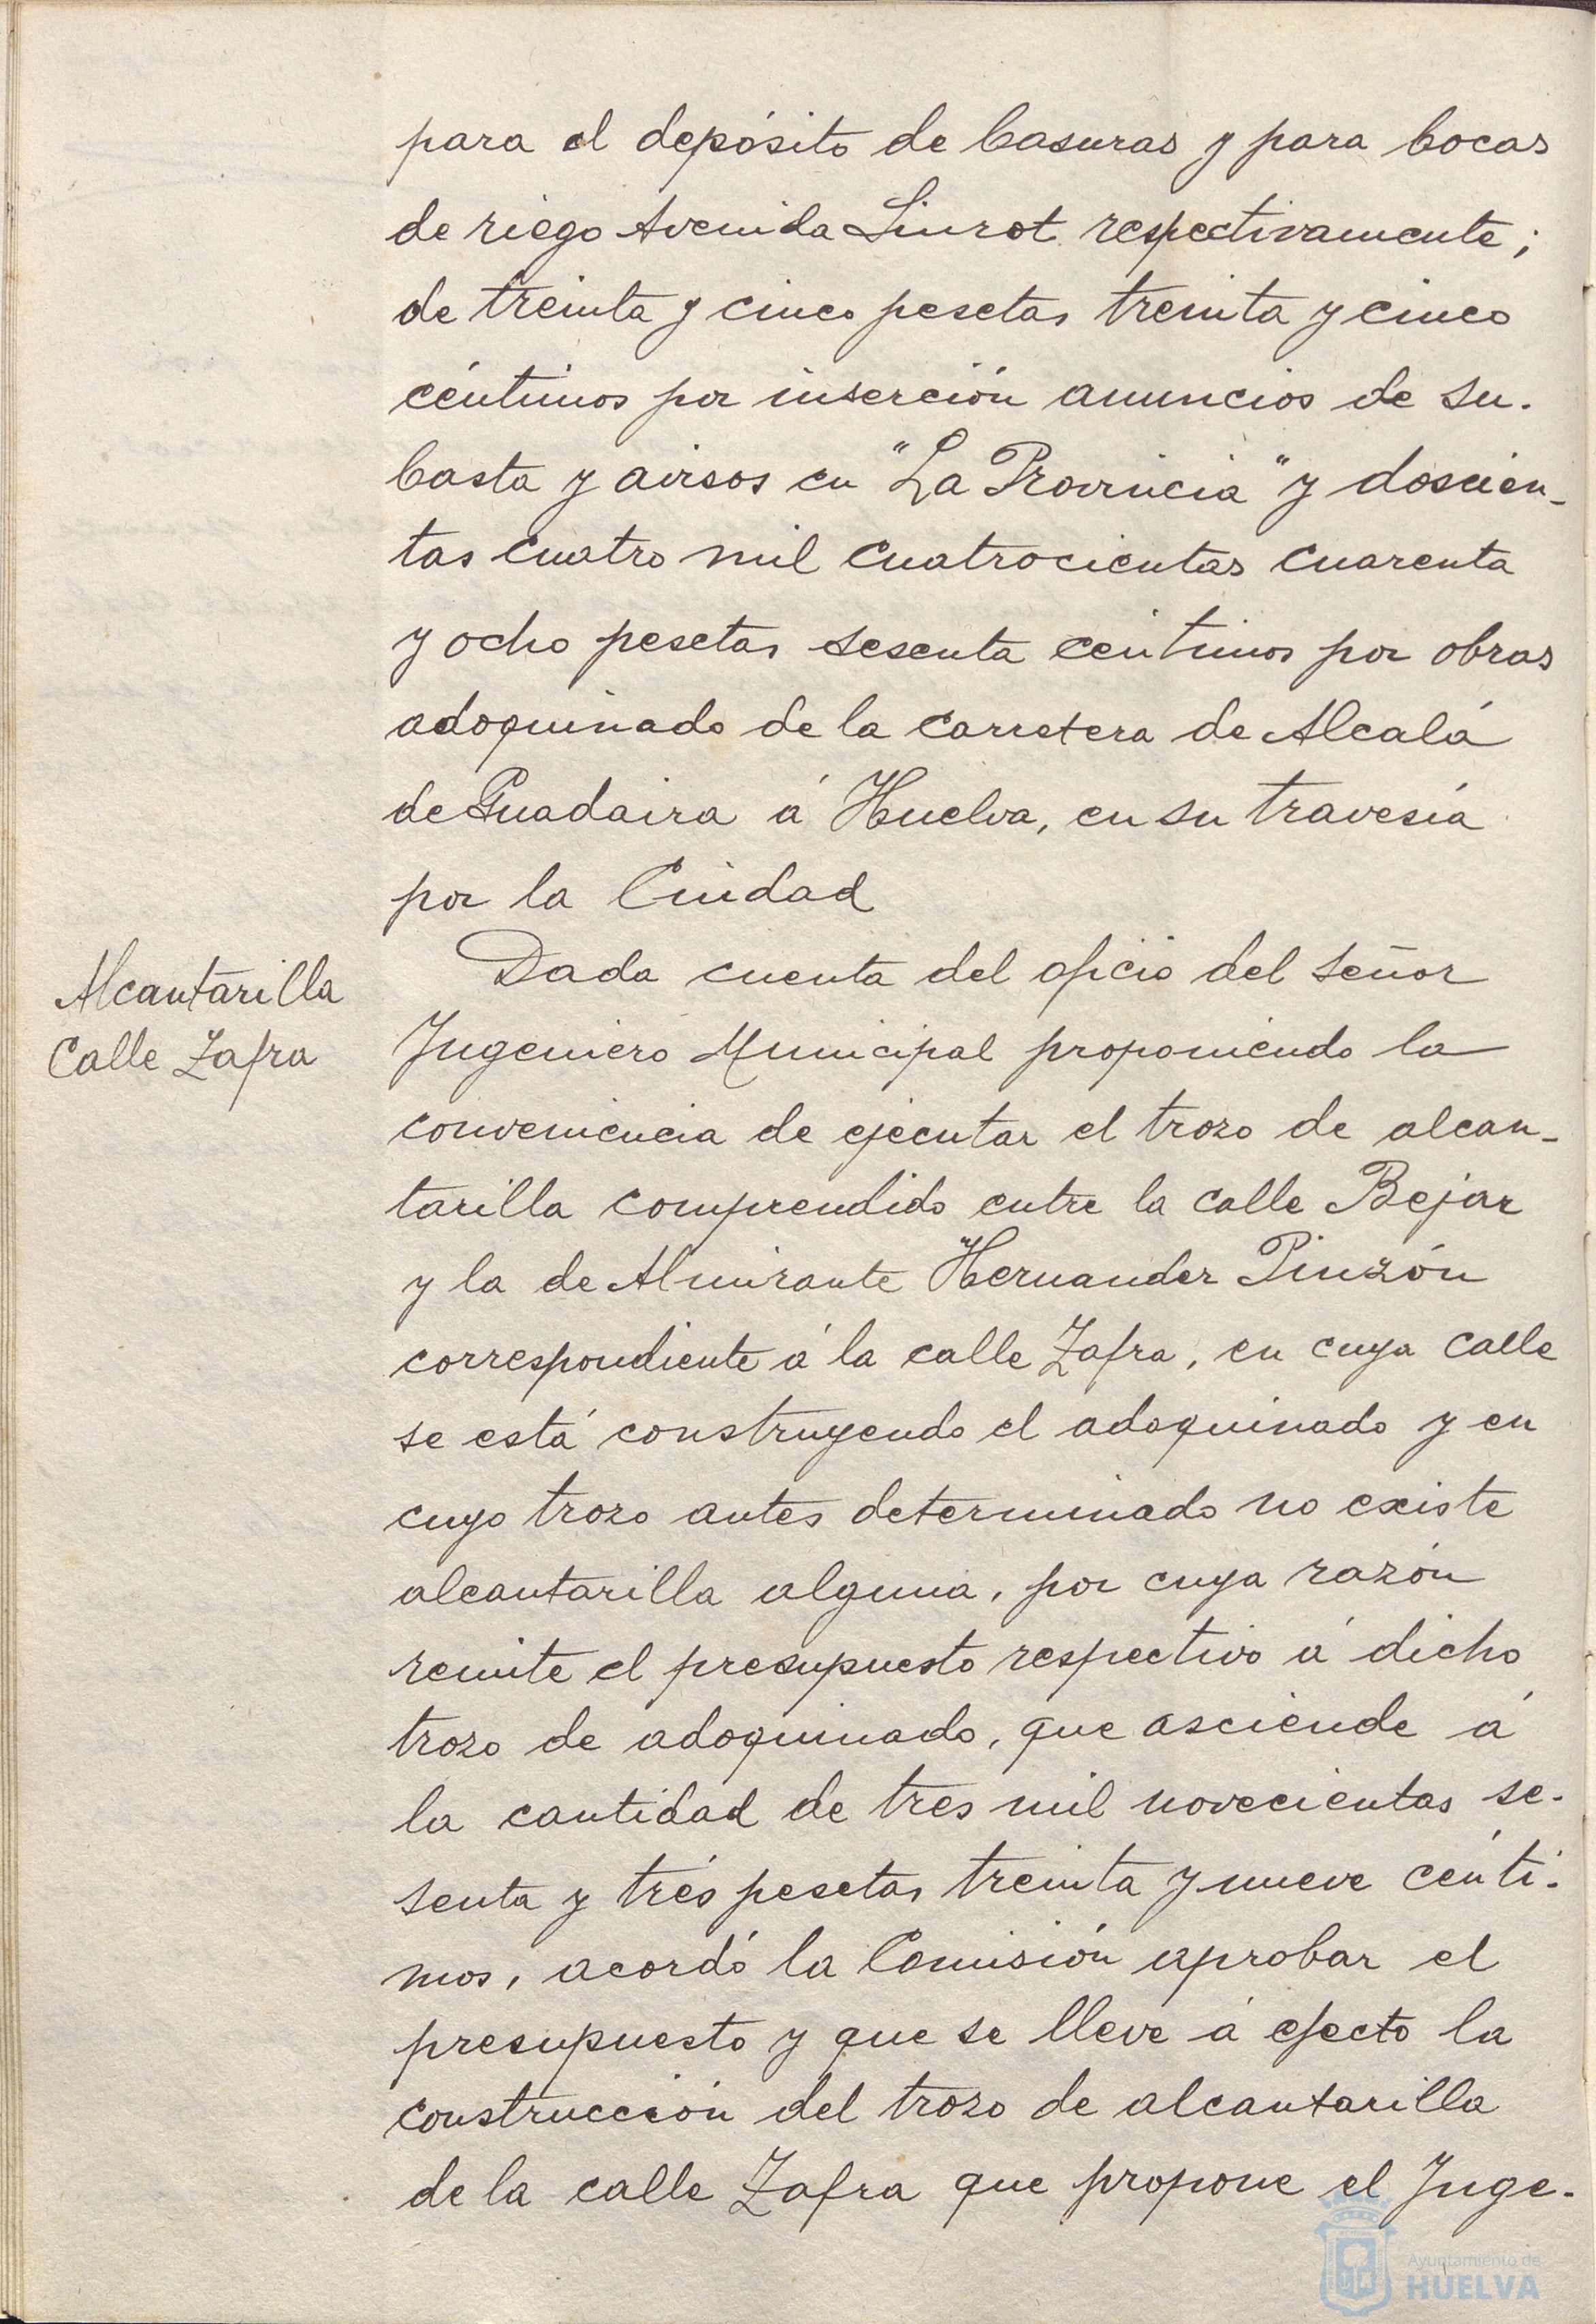 para el depósito de basuras y para bocas
de riego Avenida Linrot respectivamente;
de treinta y cinco pesetas treinta y cinco
céntimos por inserción anuncios de su-
basta y avisos en "La Provincia" y doscien-
tas cuatro mil cuatrocientas cuarenta
y ocho pesetas sesenta centimos por obras
adoquinado de la carretera de Alcalá
de Guadaira á Huelva, en su travesía
por la Ciudad
Alcantarilla
Calle Zafra
Dada cuenta del oficio del señor
Ingeniero Municipal proponiendo la
conveniencia de ejecutar el trozo de alcan-
tarilla comprendido entre la calle Bejar
y la de Almirante "Hernandez Pinzón
correspondiente á la calle Zafra, en cuya calle
se está construyendo el adoquinado y en
cuyo trozo antes determinado no existe
alcantarilla alguna, por cuya razón
remite el presupuesto respectivo á dicho
trozo de adoquinado, que asciende á
la cantidad de tres mil novecientas se-
senta y trés pesetas treinta y nueve cénti-
mos, acordó la Comisión aprobar el
presupuesto y que se lleve á efecto la
construcción del trozo de alcantarilla
de la calle Zafra que propone el Inge-
Ayuntamiento de
HUELVA